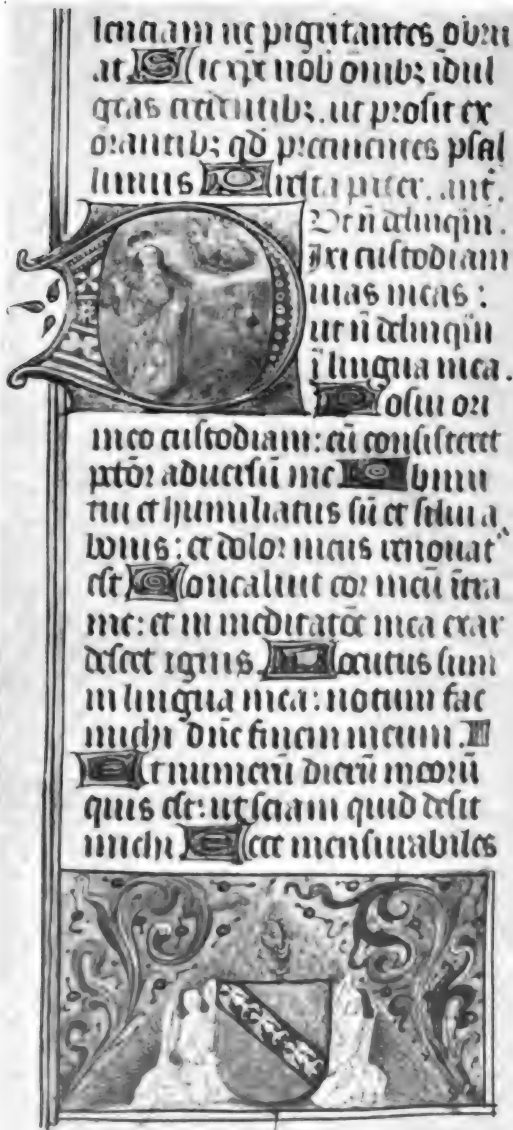 lenciam ne pigritantes obru
at Sic xpe nob omib; idul
geas credentib;, ut prosit ex
orantib; qd precinentes psal
limus Dicta p̄iter, ant̄.
Ut n̄ delinqm̄.
Dixi custodiam
uias meas :
ut n̄ delinqm̄
ī lingua mea.
Posui ori
meo custodiam: cū consisteret
pctōr aduersū me Obmu
tui et humiliatus sū et silui a
bonis: et dolor meus renouat᷒
est Concaluit cor meū ītra
me: et in meditatōe mea exar
descet ignis. Locutus sum
in lingua mea: notum fac
michi dn̄e finem meum.
Et numerū dierū meorū
quis est: ut sciam quid desit
michi Ecce mensurabiles